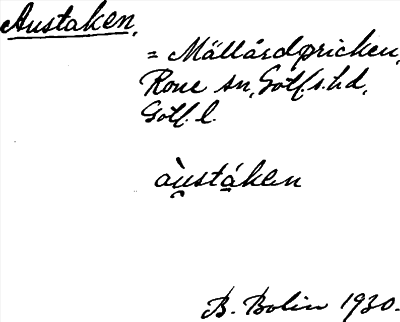 Austaken,
= Mällårdpricken,
Rone sn, Gotl. s. hd,
Gotl. l.
àustáken
B. Bolin 1930.